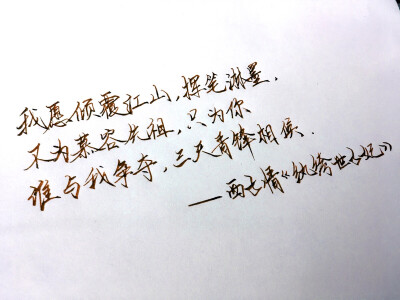 我愿倾覆江山，挥笔淋墨，
不为慕容先祖，只为你
谁与我争夺，三尺青锋相候．
——西七情《纨绔世子妃》